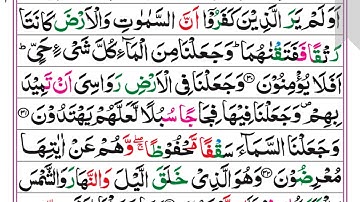 اَوَلَمْ يَرَ الَّذِيْنَ كَفَرُوْۤا اَنَّ السَّمٰوٰتِ وَالْاَرْضَ كَانَتَا
رَتْقًا فَفَتَقْنٰهُمَا ؕ وَجَعَلْنَا مِنَ الْمَآءِ كُلَّ شَيْءٍ حَيٍّ ؕ
اَفَلَا يُؤْمِنُوْنَ ۝۳۰ وَجَعَلْنَا فِي الْاَرْضِ رَوَاسِيَ اَنْ تَمِيْدَ
بِهِمْ ۪ وَجَعَلْنَا فِيْهَا فِجَاجًا سُبُلًا لَّعَلَّهُمْ يَهْتَدُوْنَ ۝۳۱
وَجَعَلْنَا السَّمَآءَ سَقْفًا مَّحْفُوْظًا ۖۚ وَّهُمْ عَنْ اٰيٰتِهَا
مُعْرِضُوْنَ ۝۳۲ وَهُوَ الَّذِيْ خَلَقَ الَّيْلَ وَالنَّهَارَ وَالشَّمْسَ